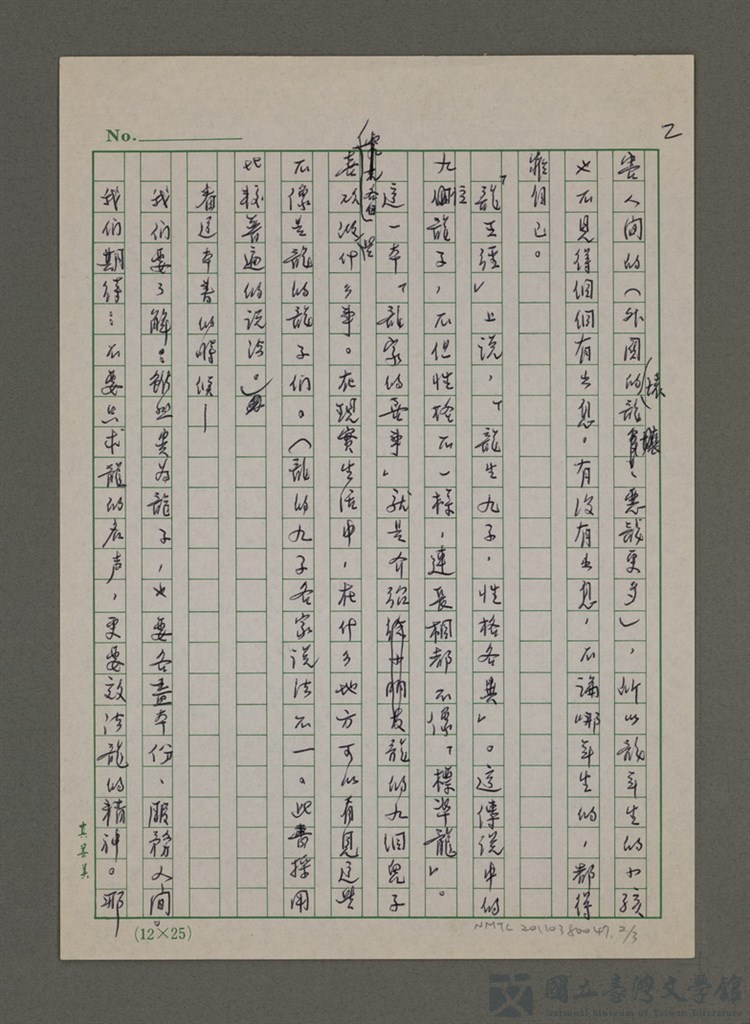 No.
2
害人間的(外國的壞龍、惡龍更多),所以龍年生的小孩
也不見得個個有出息。有沒有出息,不論哪年生的,都得
靠自己。
「龍王經」上說,「龍生九子,性格各異」。這傳說中的
九位龍子,不但性格不一樣,連長相都不像「標準龍」。
這一本「龍家的喜事」就是介紹龍的九個兒子
喜歡做些什么事。在現實生活中,在什么地方可以看見這些
不像是龍的龍子們。(龍的九子各家說法不一。此書採用
比較普遍的說法。)
看這本書的時候—
我們要了解:雖然貴為龍子,也要各盡本份、服務人間。
我們期待:不要只求龍的名声,更要效法龍的精神。那
(12×25)
NMTL 20110380047. 2/3
國立臺灣文學館
National Museum of Taiwan Literature